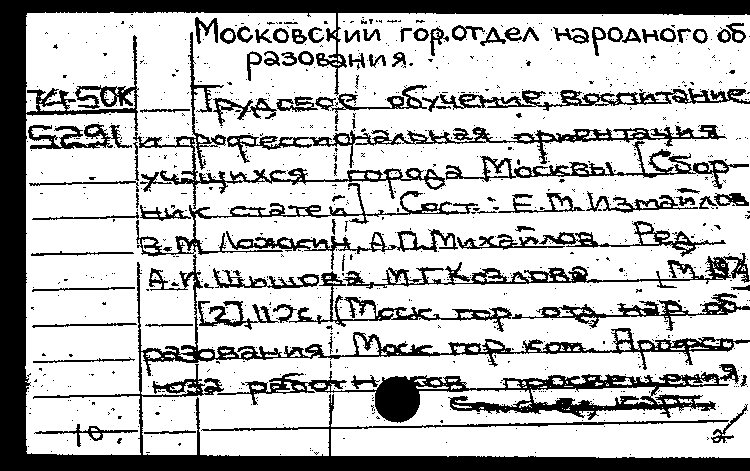 Московский гор.отдел народного об
разования.
74-50К Трудовое обучение, воспитание
S291 и профессиональная ориентация
учащихся города Москвы. [Сбор-
ник статей]. Сост.: Е.М. Измайлов,
В.М. Ложкин, А.П. Михайлов. Ред.
А.И. Шишова, М.Г. Козлова. М.
[2], 119с. (Моск. гор. отд. нар. об-
разования. Моск. гор. ком. Профсо-
юза работников просвещения,
10.